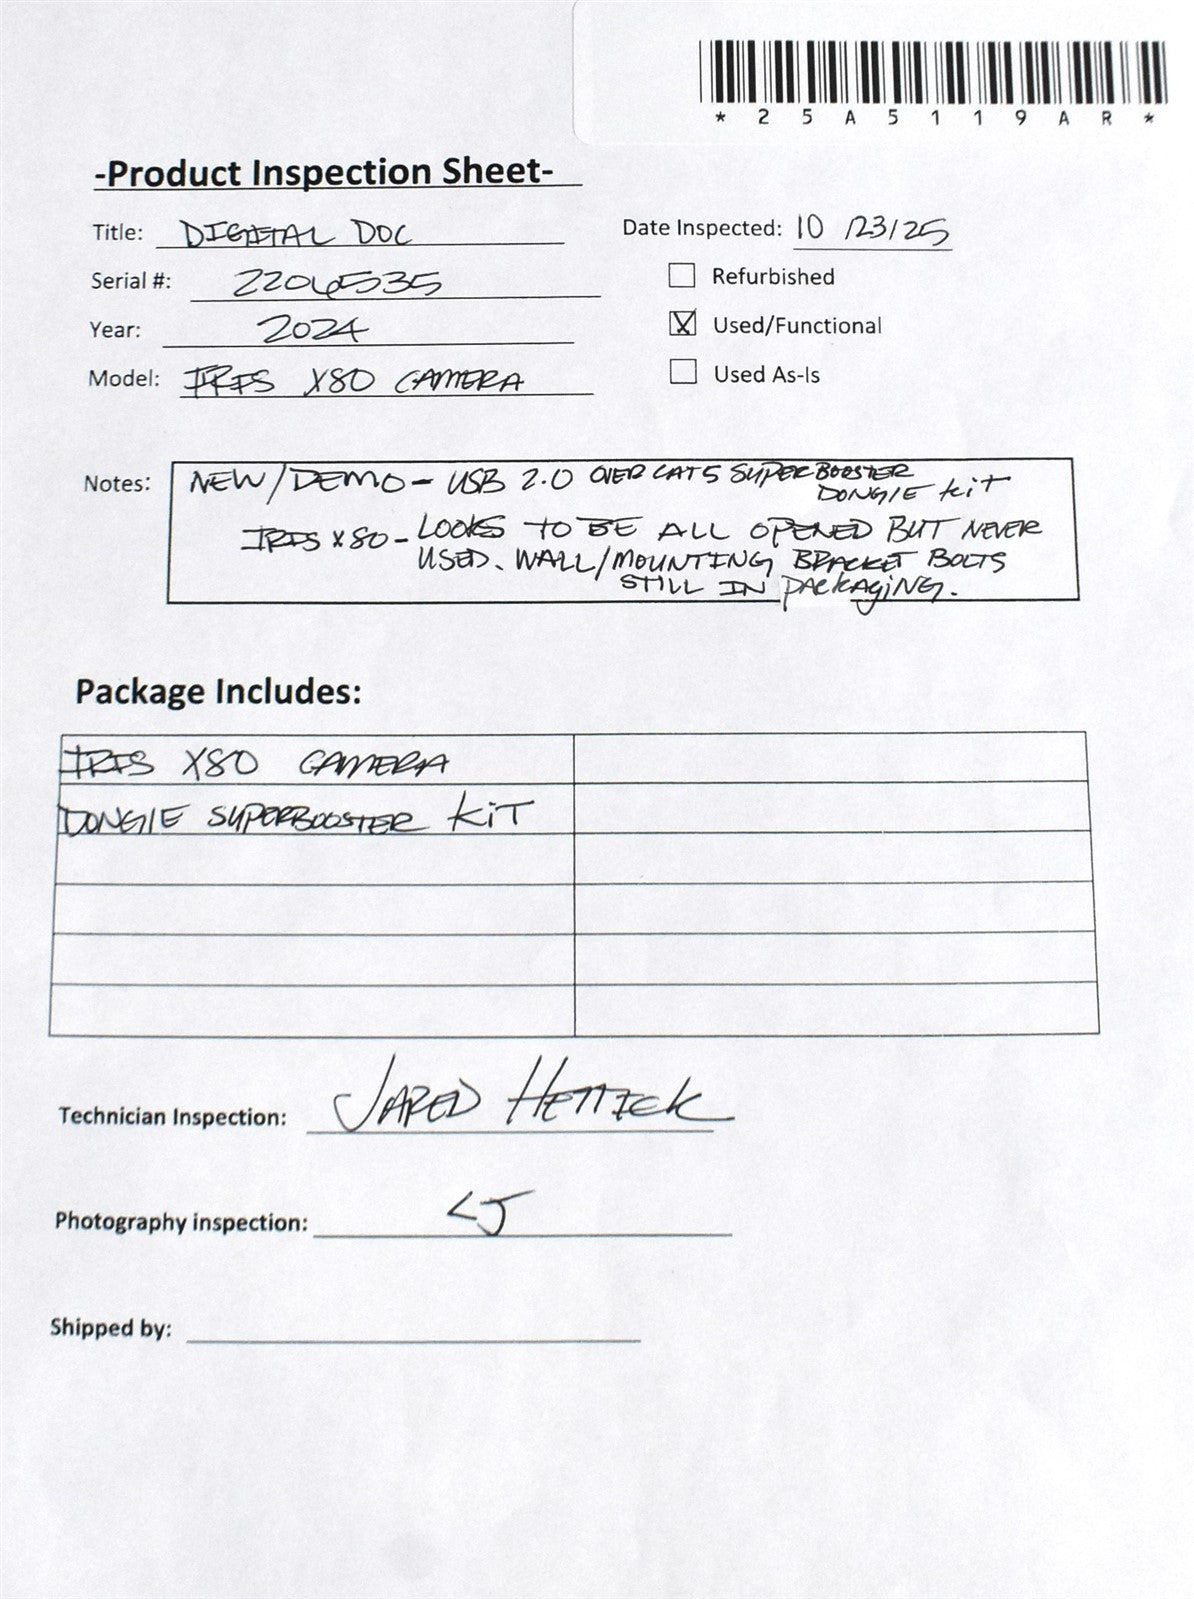 *25A5119AR*
-Product Inspection Sheet-
Title: DIGITAL DOC
Date Inspected: 10/23/25
Serial #: 2206535
Refurbished
Year: 2024
Used/Functional
Model: IRIS X80 CAMERA
Used As-Is
Notes: NEW/DEMO - USB 2.0 OVER CAT5 SUPERBOOSTER
DONGlE kiT
IRIS X80 - LOOKS TO BE ALL OPENED BUT NEVER
USED. WALL/MOUNTING BRACKET BOLTS
STILL IN PACkAGiNG.
Package Includes:
IRIS X80 CAMERA
DONGlE SUPERBOOSTER kiT
Technician Inspection: JARED HETTICK
Photography inspection: CJ
Shipped by: